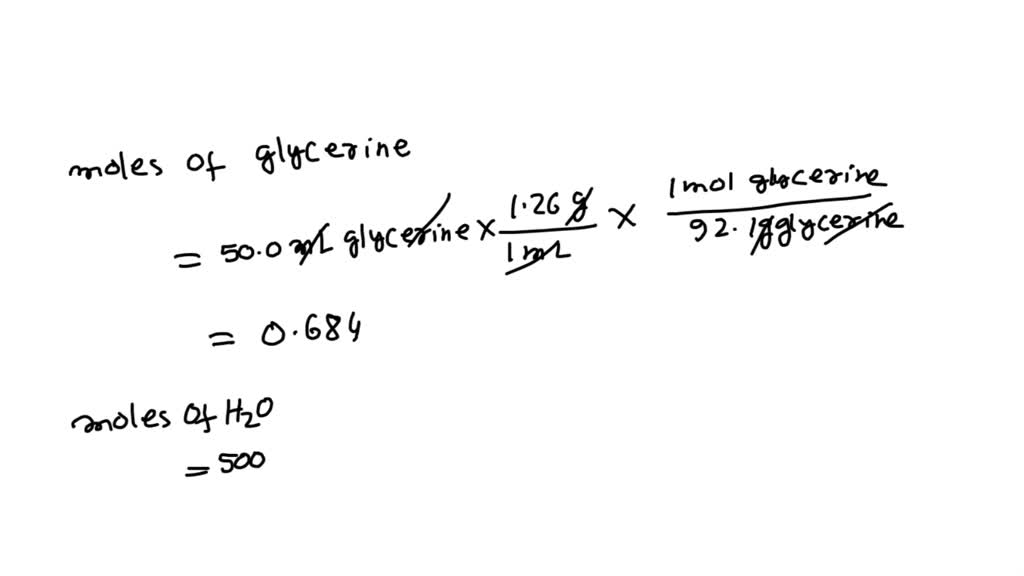 moles of glycerine
= 50.0 mL glycerine × 1.26 g / 1 mL × 1 mol glycerine / 92.1 g glycerine
= 0.684
moles of H₂O
= 500